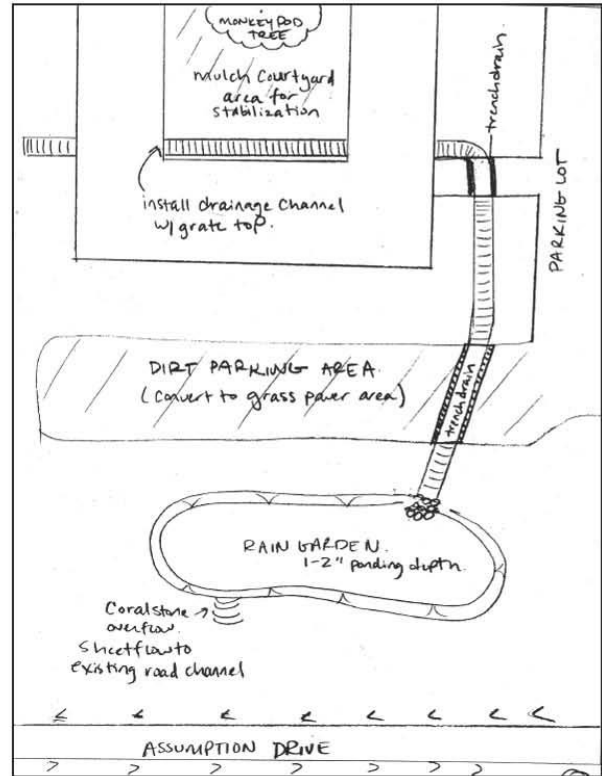 MONKEYPOD
TREE
mulch Courtyard
area for
stabilization
trenchdrain
install drainage Channel
w/ grate top.
PARKING LOT
DIRT PARKING AREA.
(convert to grass paver area)
trenchdrain
RAIN GARDEN.
1-2" ponding depth.
Coralstone
overflow.
Sheetflow to
existing road channel
ASSUMPTION DRIVE